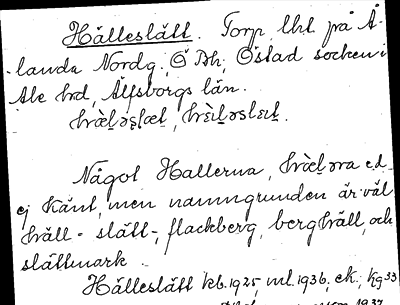 Hälleslätt. Torp lht på Å-
landa Nordg., Ö Bh, Östad socken i
Ale hrd, Älfsborgs län.
Något Hallerna,
ej känt, men namngrunden är väl
häll- slätt-, flackberg, berghäll, och
slättmark.
Hälleslätt kb. 1925, ml. 1936, ek., kg 33
1937